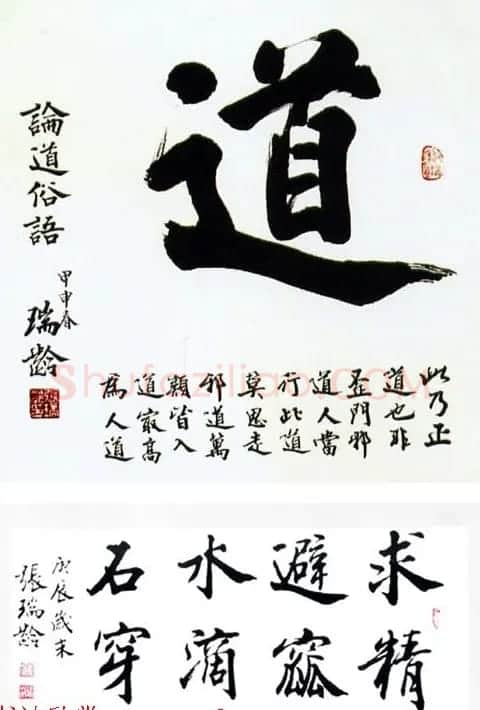 道
此乃正
道也非
歪門邪
道人當
行此道
莫思走
邪道萬
皆入
道最高
為人道
論道俗語
甲申春
瑞齡
Shufaziliao.COM
求精
避窳
水滴
石穿
庚辰歲末
張瑞齡